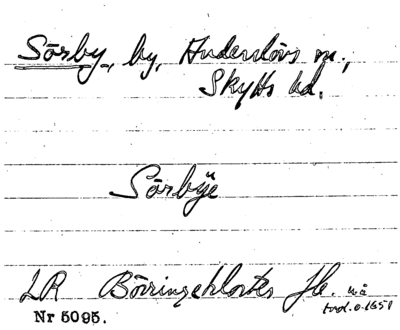 Sörby, by, Anderslövs sn.,
Skytts hd.
Sörbÿe
LR Börringeklosters Jb. u.å
trol. o. 1651
Nr 5095.